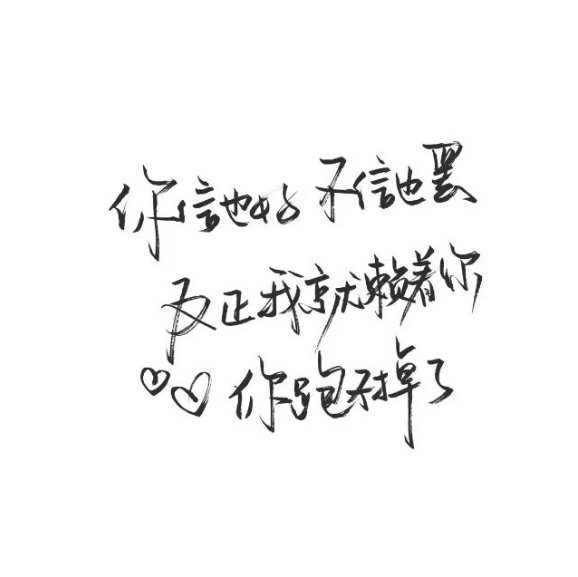 你信也好 不信也罢
反正我就赖着你
♡♡ 你跑不掉了